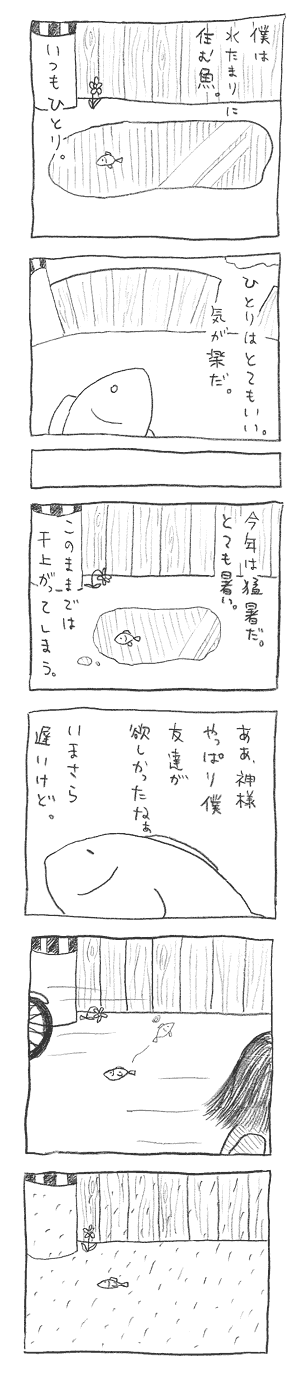 僕は
水たまりに
住む魚。
いつもひとり。
ひとりはとてもいい。
気が楽だ。
今年は猛暑だ。
とても暑い。
このままでは
干上がってしまう。
ああ、神様
やっぱり僕
友達が
欲しかったなぁ
いまさら
遅いけど。